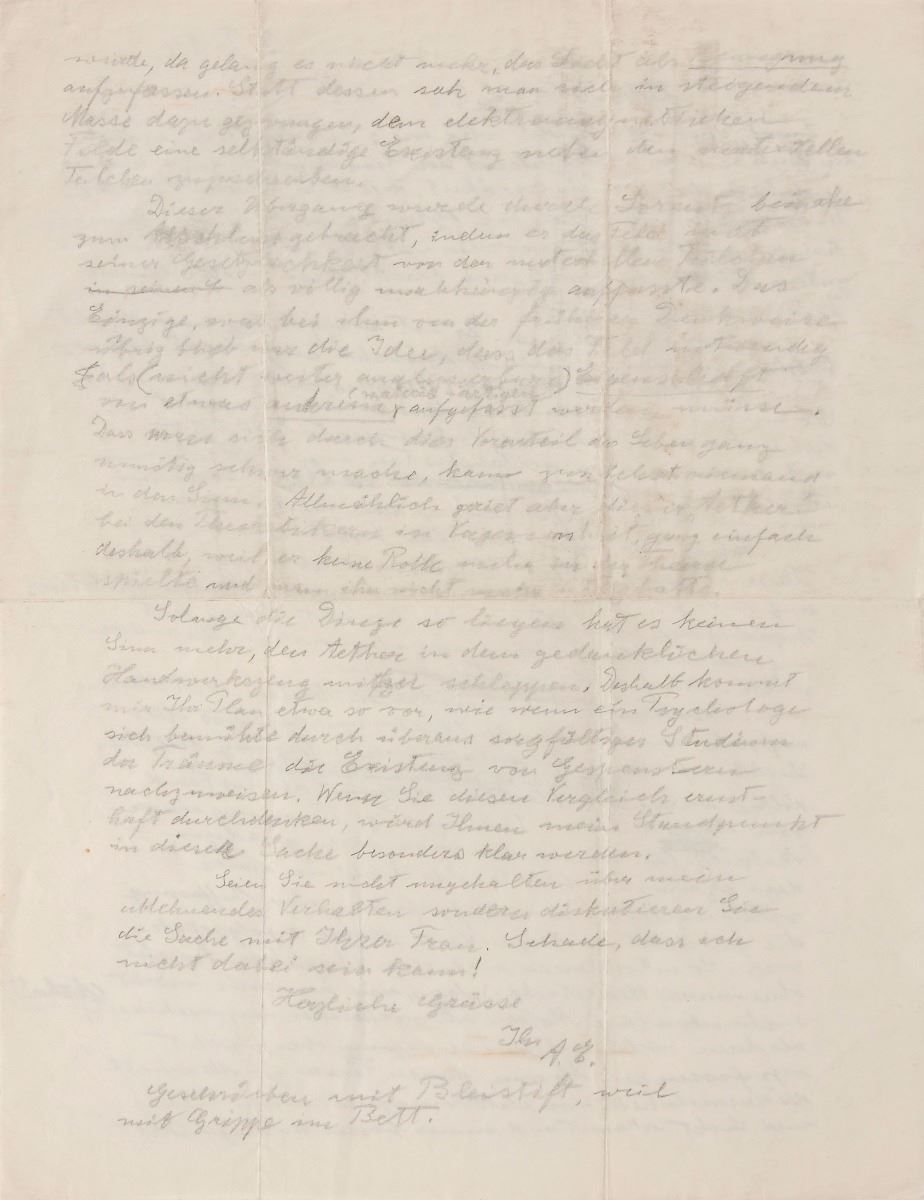 wurde, da gelang es nicht mehr, das Licht als Bewegung
aufzufassen. Statt dessen sah man sich in steigendem
Masse dazu gezwungen, dem elektromagnetischen
Felde eine selbständige Existenz neben den materiellen
Teilchen zuzuschreiben.
Dieser Übergang wurde durch Lorentz beinahe
zum Abschluss gebracht, indem er das Feld in
seiner Gesetzlichkeit von den materiellen Teilchen
als völlig unabhängig auffasste. Das
Einzige, was bei ihm von der früheren Denkweise
übrig blieb war die Idee, dass das Feld notwendig
als (nicht weiter analysierbare) Eigenschaft
von etwas aufgefasst werden müsse.
Dass man sich durch dies Vorurteil das Leben ganz
unnötig schwer mache, kam zunächst niemand
in den Sinn. Allmählich geriet aber dieser Aether
bei den Theoretikern in Vergessenheit, ganz einfach
deshalb, weil er keine Rolle mehr in der Theorie
spielte und man ihn nicht mehr
Solange die Dinge so liegen hat es keinen
Sinn mehr, den Aether in dem gedanklichen
Handwerkszeug mit schleppen. Deshalb kommt
mir Ihr Plan etwa so vor, wie wenn ein Psychologe
sich bemühte durch überaus sorgfältiges Studium
der Träume die Existenz von Gespenstern
nachzuweisen. Wenn Sie diesen Vergleich ernst-
haft durchdenken, wird Ihnen mein Standpunkt
in dieser Sache besonders klar werden.
Seien Sie nicht ungehalten über mein
ablehnendes Verhalten sondern diskutieren Sie
die Sache mit Ihrer Frau. Schade, dass ich
nicht dabei sein kann!
Herzliche Grüsse
Ihr
A. E.
Geschrieben mit Bleistift, weil
mit Grippe im Bett.